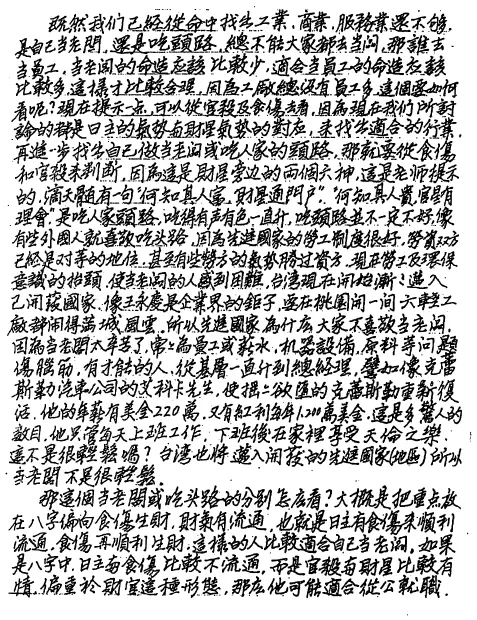 既然我们已經從命中找出工業、商業、服務業還不够,
是自己当老闆,還是吃頭路,總不能大家都去当闆,那誰去
当員工,当老闆的命造应該比較少,適合当員工的命造应該
比較多,這樣才比較合理,因為工廠總沒有員工多,這個要如何
看呢?現在提示一点,可以從官殺及食傷去看,因為現在我們所討
論的都是日主的氣勢与財星氣勢的對应,來找出適合的行業,
再進一步找出自己做当老闆或吃人家的頭路,那就要從食傷
和官殺來判断,因為這是財星旁边的兩個六神,這是老师提示
的,滴天髓有一句"何知其人富,財星通門户"。"何知其人貴官星有
理會"是吃人家頭路,吃得有声有色一直升,吃頭路並不一定不好,像
有些外國人就喜歡吃头路,因為先進國家的勞工制度很好,勞資双方
已經是对等的地位,甚至有些勞方的氣勢勝过資方,現在勞工及環保
意識的抬頭,使当老闆的人感到困難,台湾現在開始漸漸邁入
已開發國家,像王永慶是企業界的鉅子,要在桃園開一間六輕工
廠都闹得满城風雲,所以先進國家為什広大家不喜歡当老闆,
因為当老闆太辛苦了,常常為員工或薪水,机器設備,原料等问題
傷腦筋,有才能的人,從基層一直升到總經理,譬如像克萊
斯勒汽車公司的艾科卡先生,使摇摇欲墜的克萊斯勒重新復
活,他的年薪有美金220萬,又有紅利每年1,200萬美金,這是多驚人的
数目,他只管每天上班工作,下班後在家裡享受天倫之樂,
這不是很輕鬆嗎?台湾也将邁入開發的先進國家(地區)所以
当老闆不是很輕鬆。
那這個当老闆或吃头路的分别怎広看?大概是把重点放
在八字偏向食傷生財,財氣有流通,也就是日主有食傷來順利
流通,食傷再順利生財,這樣的人比較適合自己当老闆,如果
是八字中,日主与食傷比較不流通,而是官殺与財星比較有
情,偏重於財官這種形態,那広他可能適合從公就職。